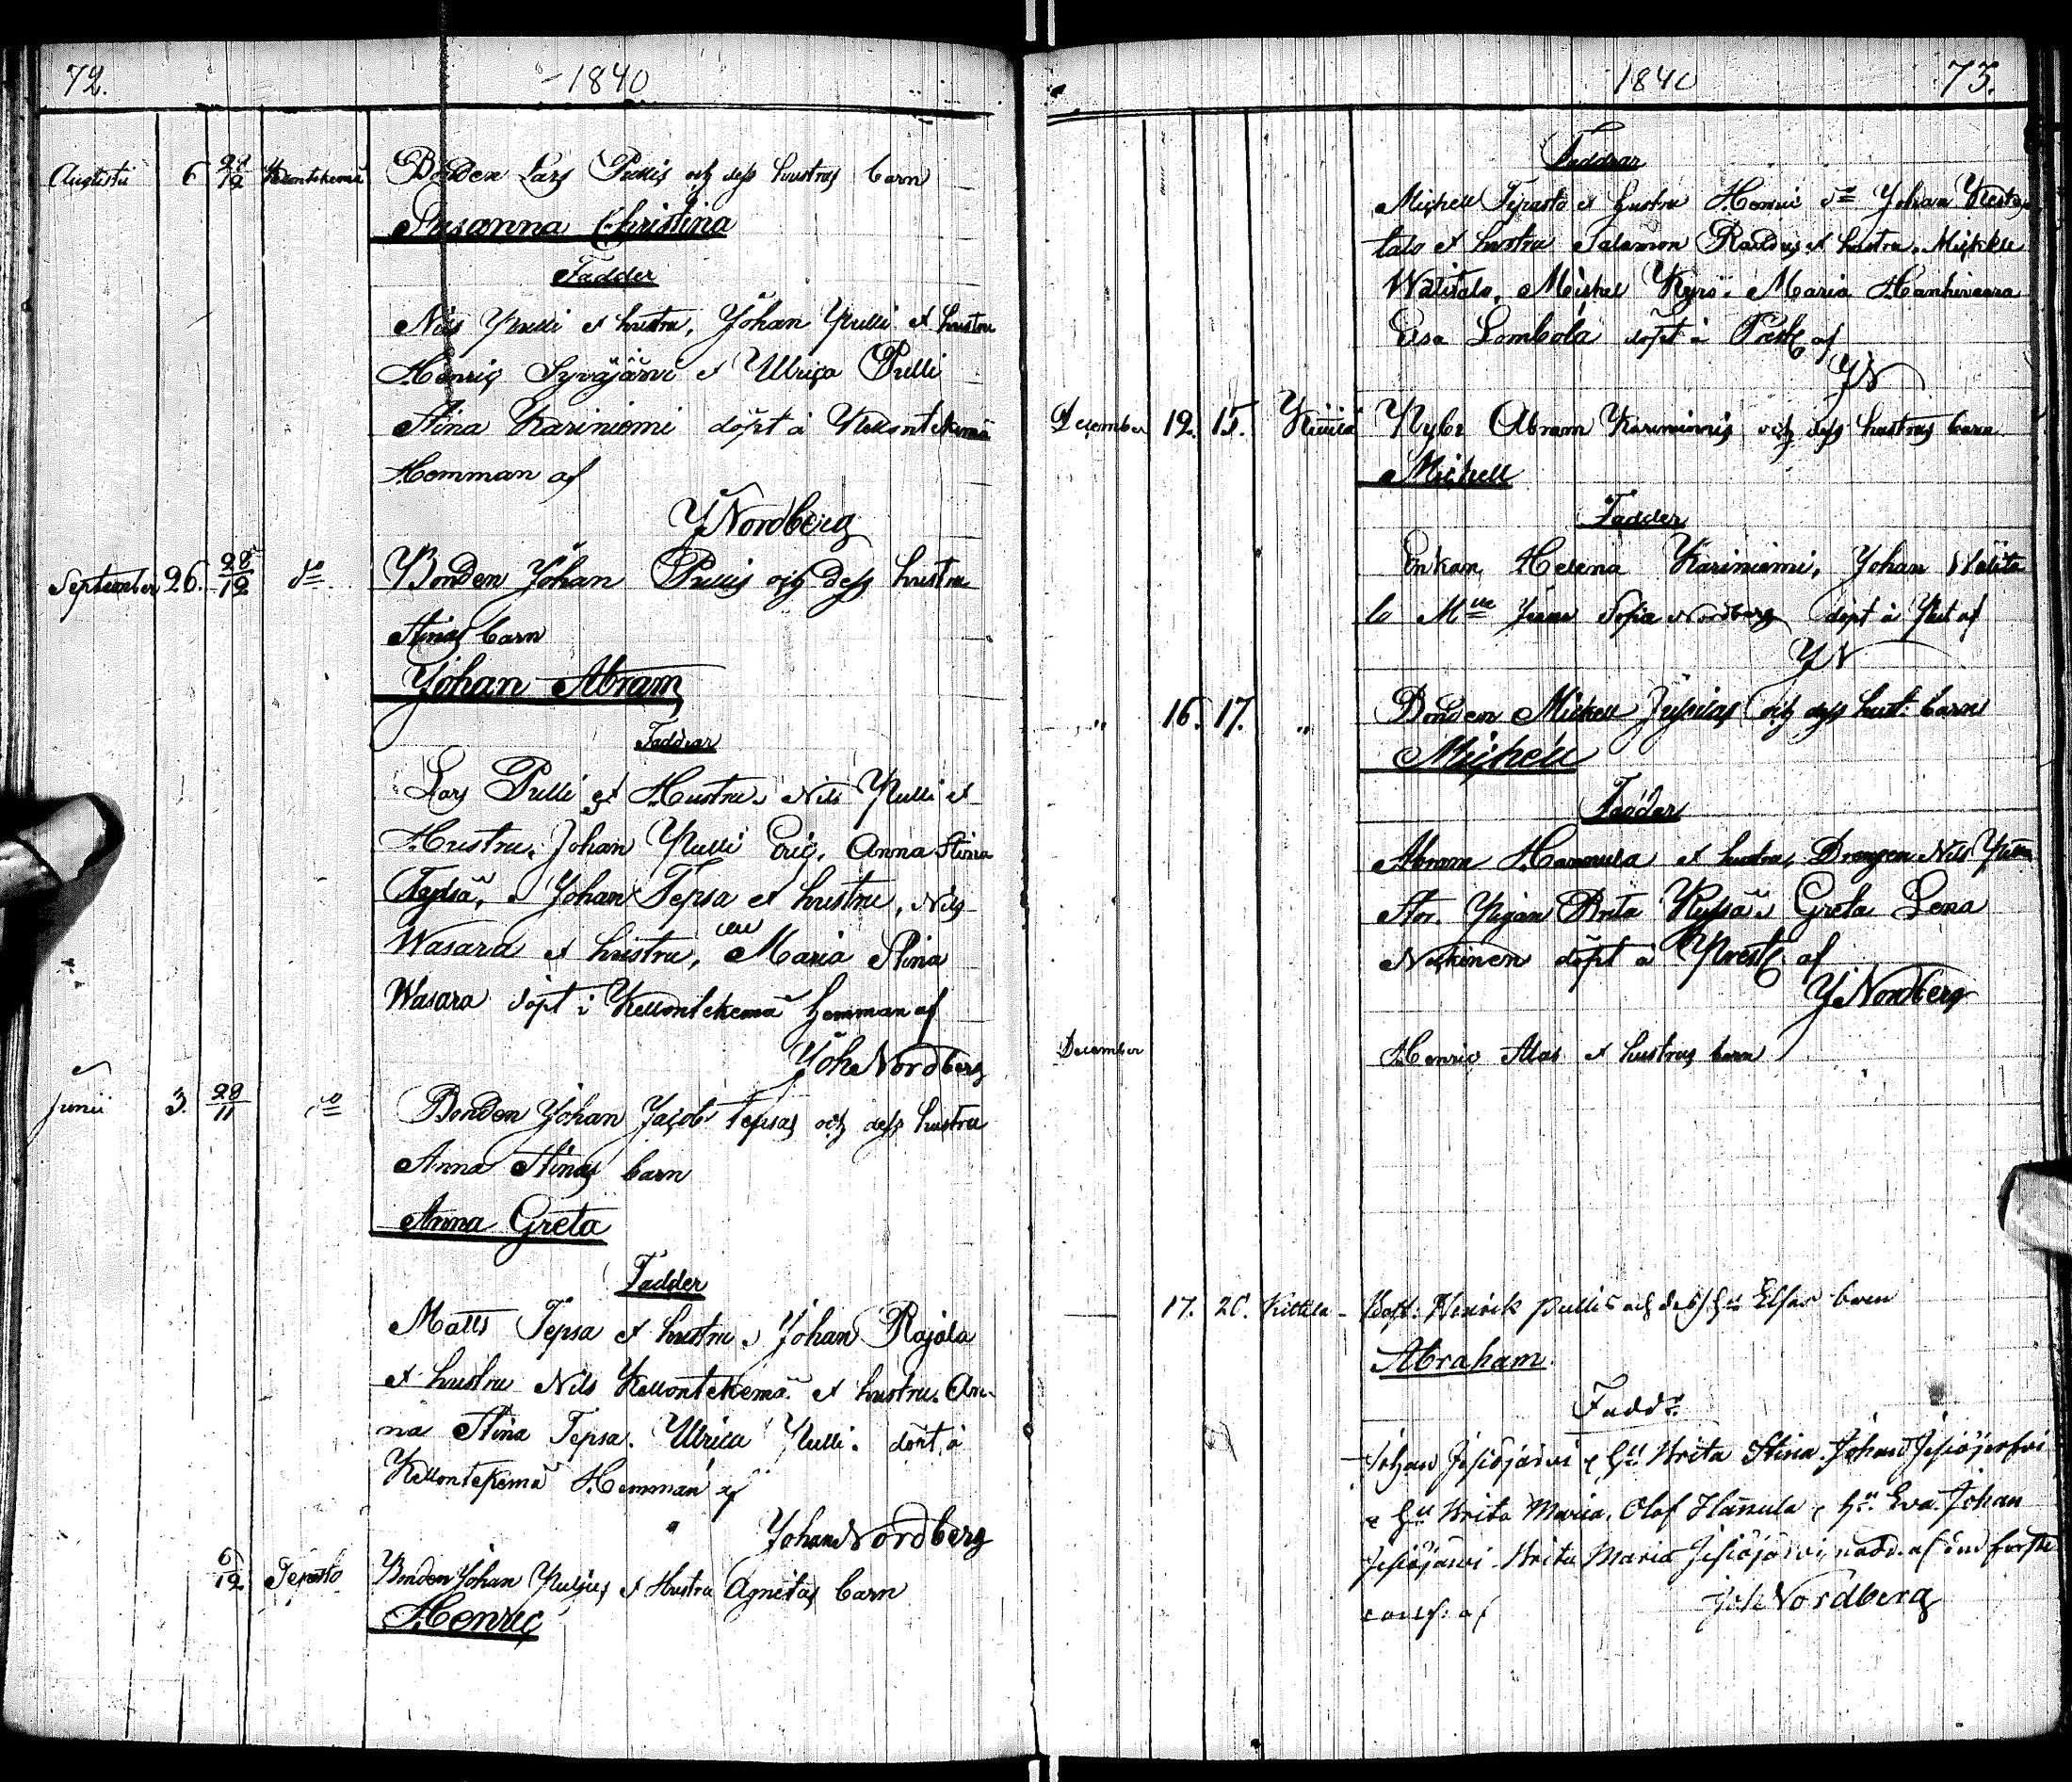 72. 1840
Augusti 6 28/12 Kellontekemä Bonden Lars Pullis och dess hustrus barn
Susanna Christina
Fadder
Nils Pulli et hustru, Johan Pulli et hustru
Henric Syväjärvi et Ulrica Pulli
Stina Kariniemi döpt å Kellontekemä
Hemman af
J Nordberg
September 26. 28/12 do Bonden Johan Pullis och dess hustru
Stinas barn
Johan Abram
Faddrar
Lars Pulli et Hustru, Nils Pulli et
Hustru, Johan Pulli Eric, Anna Stina
Tepsa, Johan Tepsa et hustru, Nils
Wasara et hustru, Maria Stina
Wasara döpt i Kellontekemä hemman af
Joh Nordberg
Junii 3. 28/11 do Bonden Johan Jacob Tepsas och dess hustru
Anna Stinas barn
Anna Greta
Fadder
Matts Tepsa et hustru, Johan Rajala
et hustru Nils Kellontekemä et hustru. An-
na Stina Tepsa. Ulrica Pulli. döpt å
Kellontekemä Hemman af
Johan Nordberg
6/12 Tepasto Bonden Johan et Hustru Agnetas barn
Henric
1840 73.
Faddrar
Michell Tepasto et hustru Henric do Johan
talo et hustru Salomon et hustru. Michell
Wälitalo, Michel Kyrö. Maria Hanhivaara
Elsa Lombola döpt i Prestg af
JN
December 12. 15. Kittilä Nyb: Abram Kariniemis och dess hustrus barn
Michell
Fadder
Enkan Helena Kariniemi, Johan Wälita
lo Mlle Sofia Nordberg döpt å af
JN
" 16. 17. " Bonden Michell och dess hust: barn
Michell
Fadder
Abram Hannula et hustru, Drengen Nils
Pigan Brita Greta Lena
Nikinen döpt å Prestg af
J Nordberg
December Henric Alas et hustrus barn
17. 20. Kittila Henrik Pullis och dess hu Elsas barn
Abraham
Faddr
Johan Jesiöjärvi & hu Brita Stina. Johan Jesiöjerfvi
& hu Brita Maria, Olof Hannula & hu Eva. Johan
Jesiöjärvi. Brita Maria Jesiöjärvi, nödd. af
af Joh Nordberg